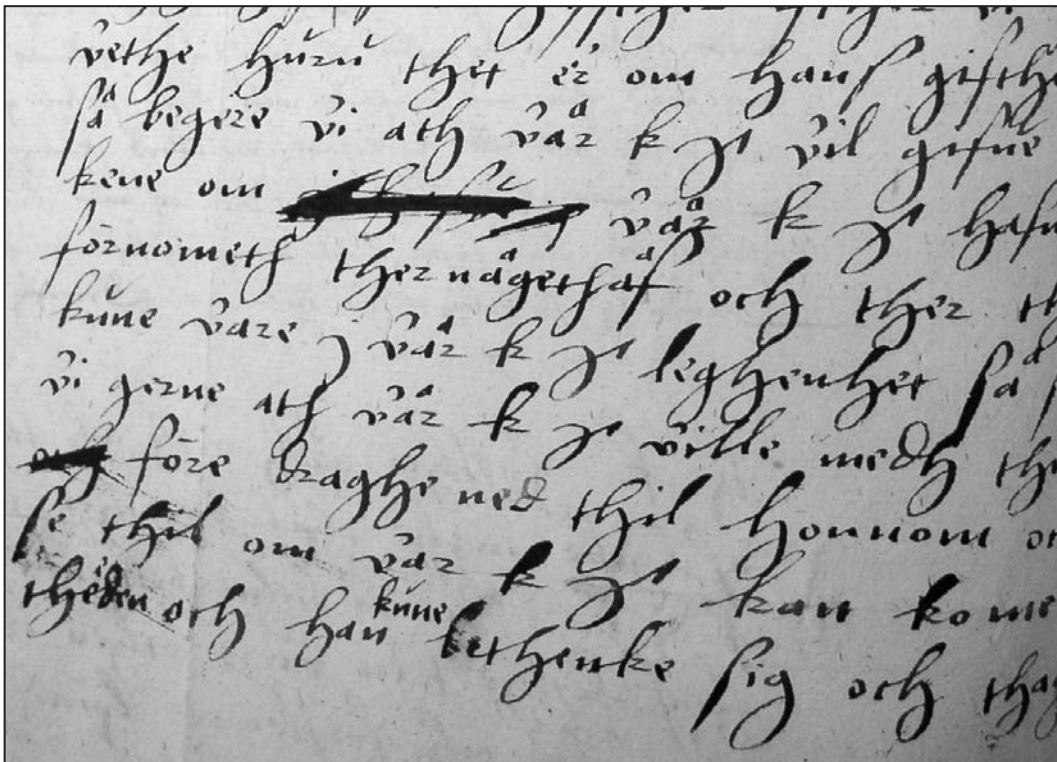 vethe huru thet er om hans gifth
så begere vi ath vår k H vil gifue
kene om vår k H hafu
förnometh ther någet haf och ther th
kune vare j vår k H leghenhet så
vi gerne ath vår k H ville medh the
före draghe ned thil honnom oc
se thil om vår k H kan kome
theden och han kune bethenke sig och thag